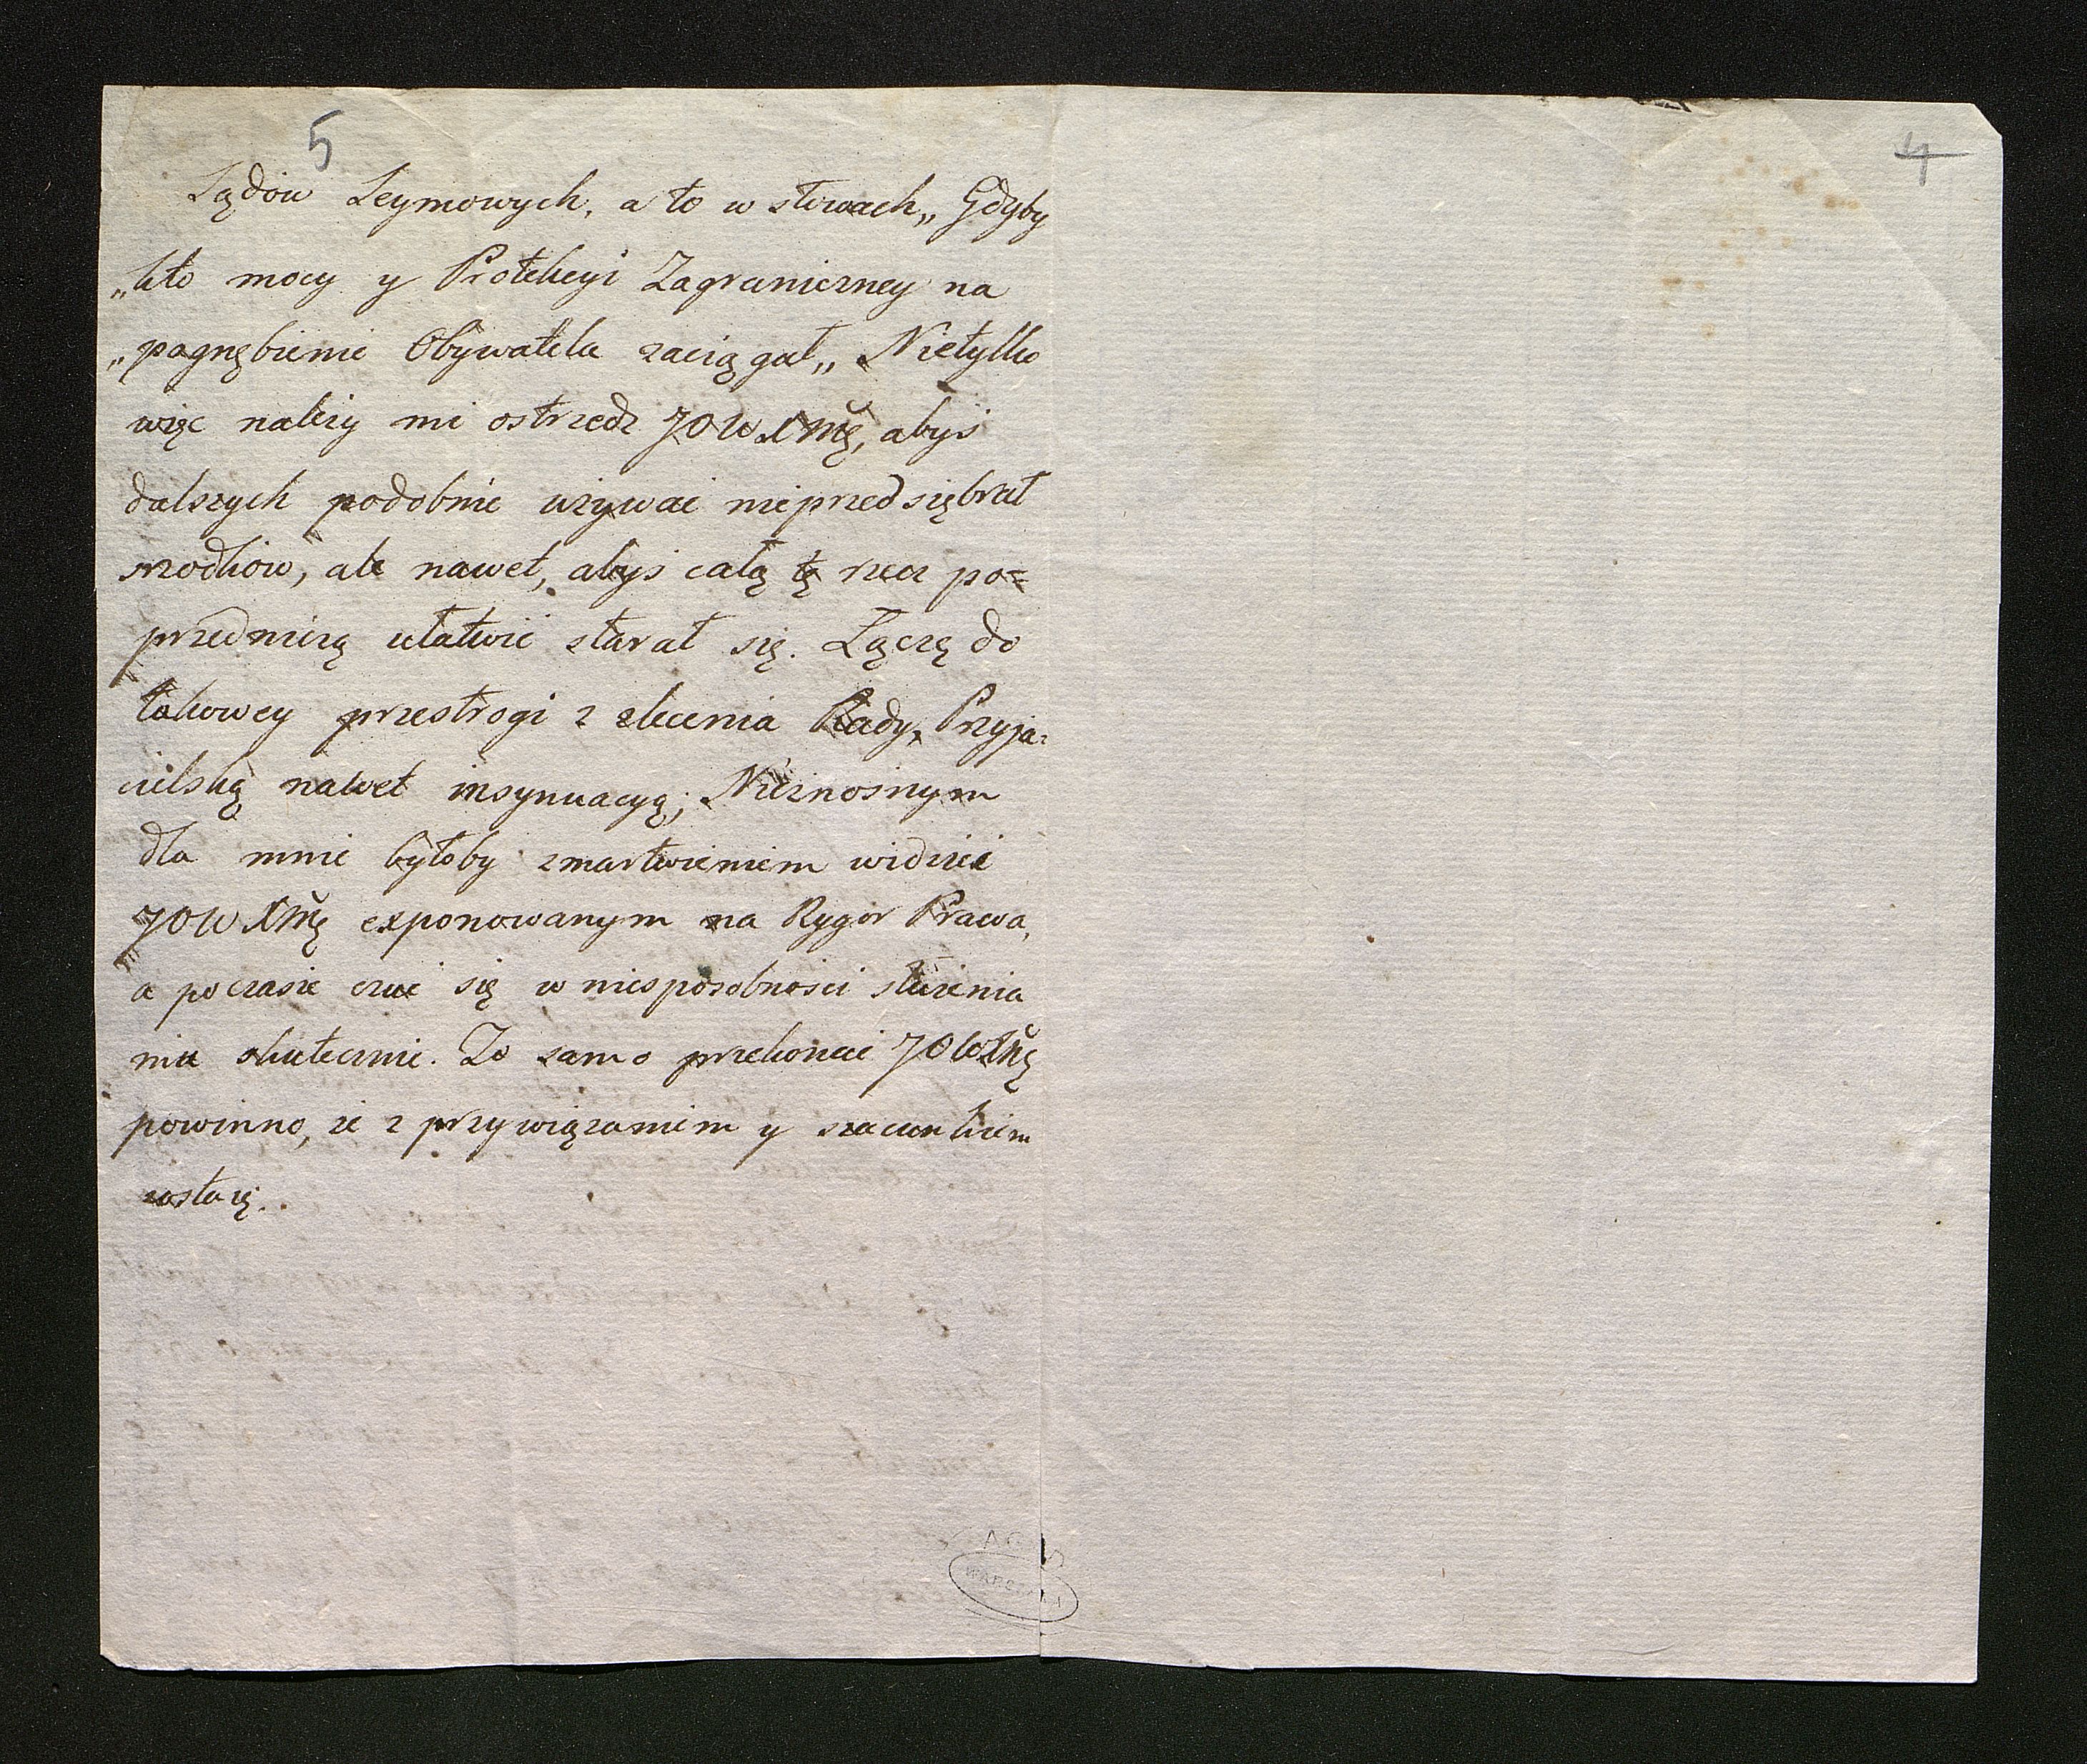 5
4
Sądow Seymowych, a to w słowach „ Gdyby
„kto mocy y Protekcyi Zagraniczney na
„pognębienie Obywatela zaciągał „ Nietylko
więc należy mi ostrzedz JOWXMę, abyś
dalszych podobnie używać nieprzedsiębrał
srzodkow, ale nawet, abyś całą tę rzecz po=
przedniczą ułatwić starał się. Łączę do
takowey przestrogi z zlecenia Rady, Przyja=
cielską nawet insynuacyą; Nieznośnym
dla mnie byłoby zmartwieniem widzieć
JOWXMę exponowanym na Rygor Prawa,
a poczasie czuć się w niesposobności służenia
mu skutecznie. To samo przekonać JOWXMę
powinno, że z przywiązaniem y szacunkiem
zostaię.
WARSZAWA